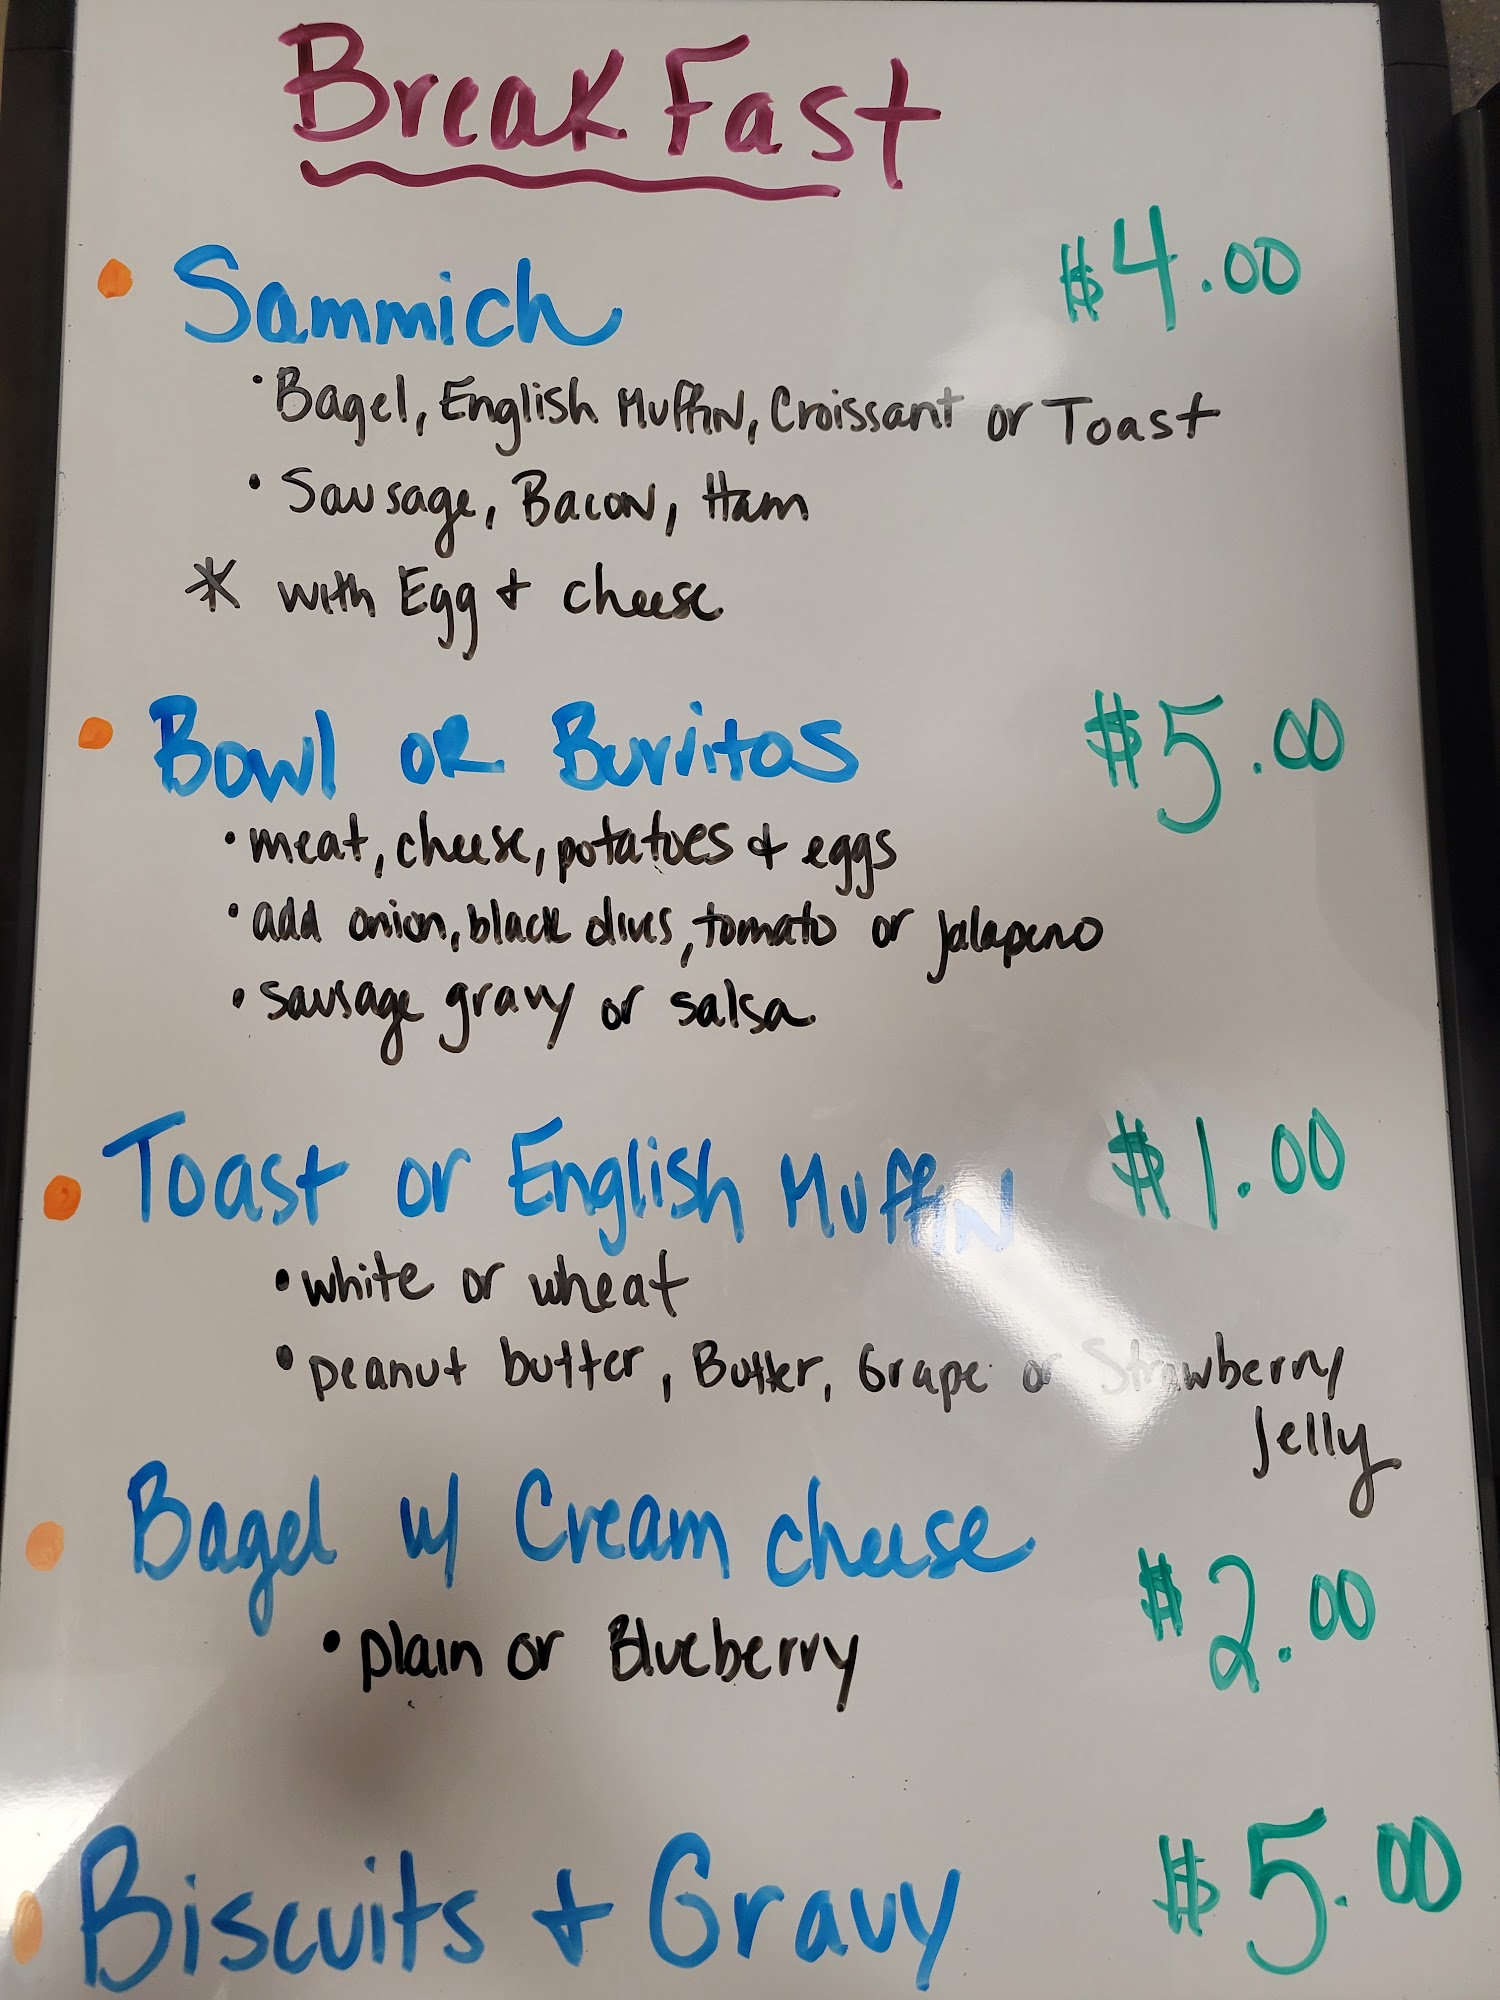 BreakFast
• Sammich $4.00
• Bagel, English Muffin, Croissant or Toast
• Sausage, Bacon, Ham
* with Egg + cheese
• Bowl or Burritos $5.00
• meat, cheese, potatoes + eggs
• add onion, black olives, tomato or jalapeno
• sausage gravy or salsa
• Toast or English Muffin $1.00
• white or wheat
• peanut butter, Butter, Grape or Strawberry
Jelly
• Bagel w/ Cream cheese $2.00
• plain or Blueberry
• Biscuits + Gravy $5.00